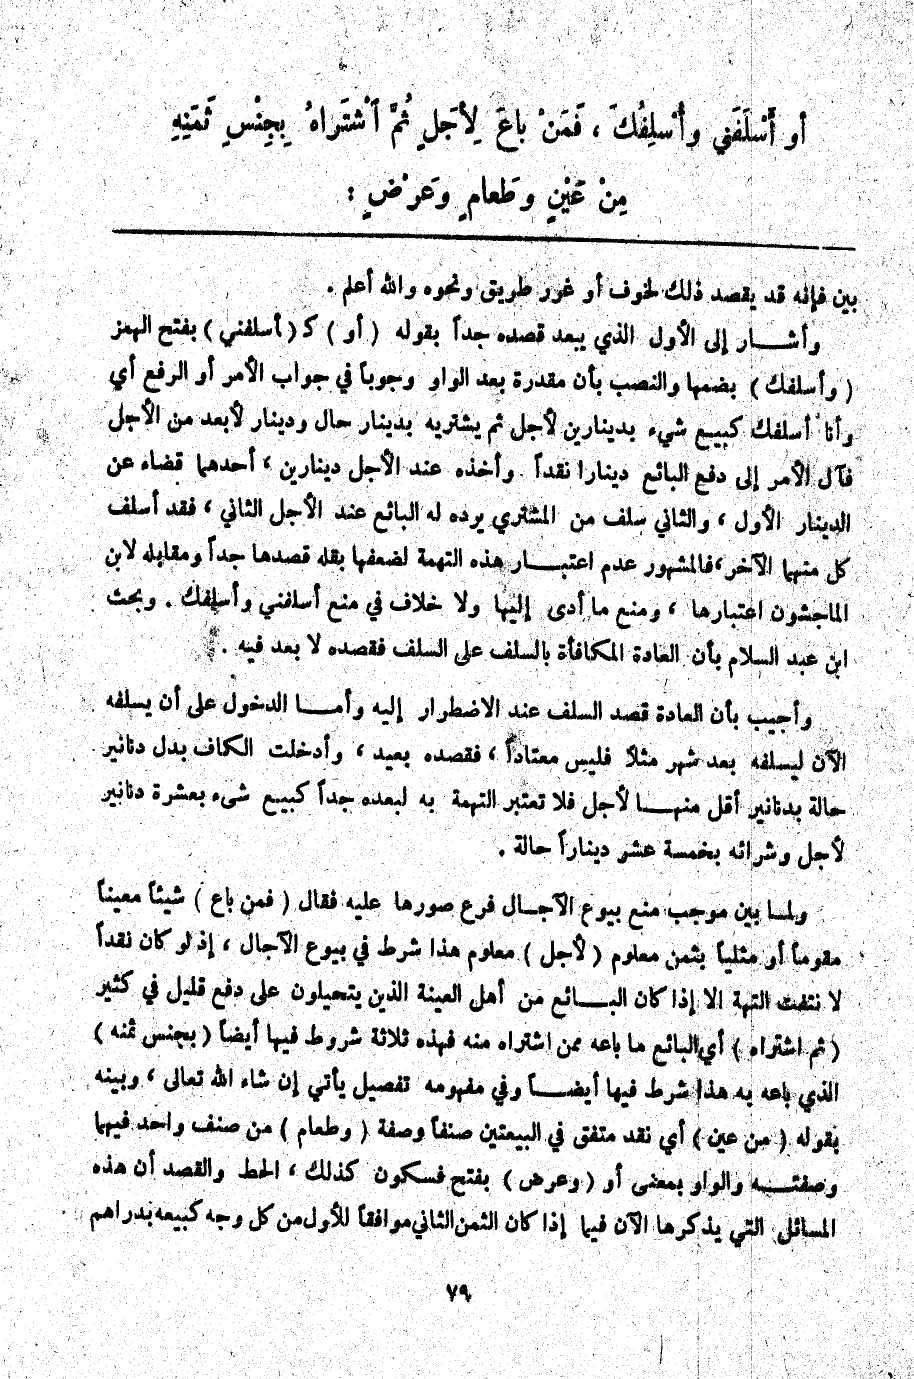 أو أَسْلَفَني وأُسْلِفُكَ ، فَمَنْ باعَ لِأَجَلٍ ثُمَّ ٱشْتَراهُ بِجِنْسِ ثَمَنِهِ
مِنْ عَيْنٍ وطَعامٍ وعَرْضٍ :
بين فإنه قد يقصد ذلك لخوف أو غرر طريق ونحوه والله أعلم .
وأشـــار إلى الأول الذي يبعد قصده جداً بقوله ( أو ) كـ ( أسلفني ) بفتح الهمز
( وأسلفك ) بضمها والنصب بأن مقدرة بعد الواو وجوباً في جواب الأمر أو الرفع أي
وأنا أسلفك كبيـع شيء بدينارين لأجل ثم يشتريه بدينار حال ودينار لأبعد من الأجل
فآل الأمر إلى دفع البائع دينارا نقداً وأخذه عند الأجل دينارين ، أحدهما قضاء عن
الدينار الأول ، والثاني سلف من المشتري يرده له البائع عند الأجل الثاني ، فقد أسلف
كل منهما الآخر،فالمشهور عدم اعتبـــار هذه التهمة لضعفها بقله قصدها جداً ومقابله لابن
الماجشون اعتبارها ، ومنع ما أدى إليها ولا خلاف في منع أسلفني وأسلفك . وبحث
ابن عبد السلام بأن العادة المكافأة بالسلف على السلف فقصده لا بعد فيه .
وأجيب بأن العادة قصد السلف عند الاضطرار إليه وأمـــا الدخول على أن يسلفه
الآن ليسلفه بعد شهر مثلاً فليس معتاداً ، فقصده بعيد ، وأدخلت الكاف بدل دنانير
حالة بدنانير أقل منهـــا لأجل فلا تعتبر التهمة به لبعده جداً كبيـع شىء بعشرة دنانير
لأجل وشرائه بخمسة عشر ديناراً حالة .
ولمـا بين موجب منع بيوع الآجـال فرع صورها عليه فقال ( فمن باع ) شيئاً معيناً
مقوماً أو مثلياً بثمن معلوم ( لأجل ) معلوم هذا شرط في بيوع الآجال ، إذ لو كان نقداً
لا نتفت التهة الا إذا كان البـــائع من أهل العينة الذين يتحيلون على دفع قليل في كثير
( ثم اشتراه ) أي البائع ما باعه ممن اشتراه منه فهذه ثلاثة شروط فيها أيضاً ( بجنس ثمنه )
الذي باعه به هذا شرط فيها أيضـــاً وفي مفهومه تفصيل يأتي إن شاء الله تعالى ، وبينه
بقوله ( من عين ) أي نقد متفق في البيعتين صنفاً وصفة ( وطعام ) من صنف واحد فيهما
وصفتـــه والواو بمعنى أو ( وعرض ) بفتح فسكون كذلك ، الحط والقصد أن هذه
المسائل التي يذكرها الآن فيما إذا كان الثمن الثاني موافقاً للأول من كل وجه كبيعه بدراهم
٧٩